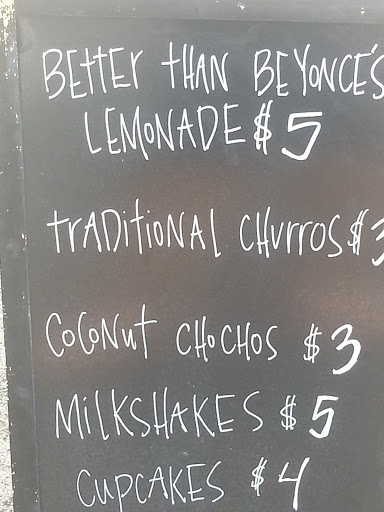 BEttER tHAN BEYONCE'S
LEMONADE $5
tRADitiONAL CHURROS $3
COCONut CHOCHOS $3
MiLKSHAKES $5
CUPCAKES $4